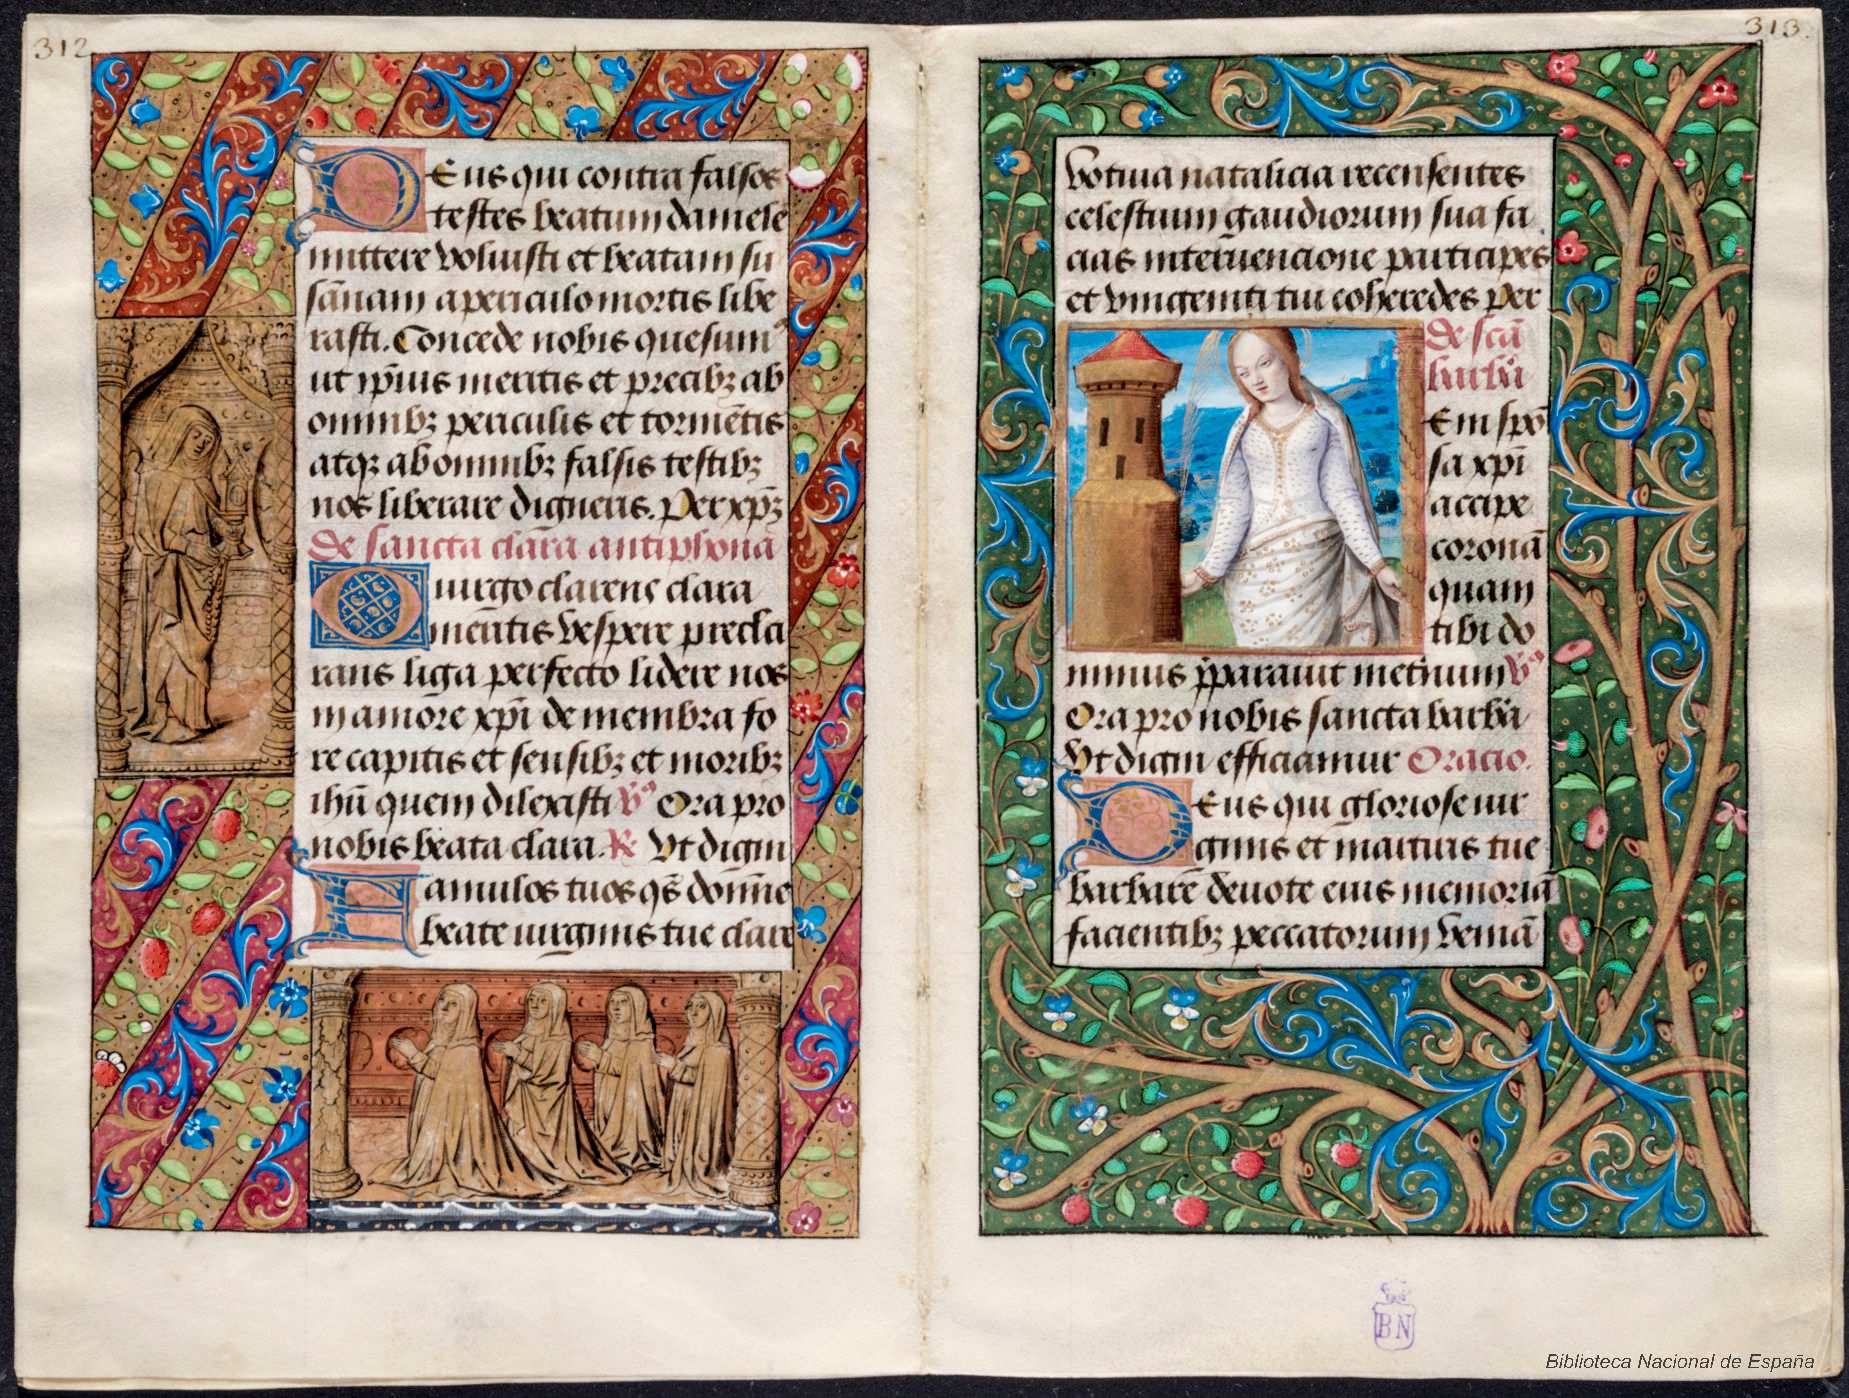 312
Deus qui contra falsos
testes beatum daniele
mittere voluisti et beatam su
sānam a periculo mortis libe
rasti. Concede nobis quesumꝰ
ut ip̄ius meritis et precibꝫ ab
omnibꝫ periculis et tormētis
atqꝫ ab omnibꝫ falsis testibꝫ
nos liberare digneris. Per xp̄ꝫ
De sancta clāra antiphonā
O uirgo clarens clara
mentis vespere precla
rans liga perfecto lidere nos
in amōre xp̄i de membra fo
re capitis et sensibꝫ et moribꝫ
ihū quem dilexisti V̄s Ora pro
nobis beata clara. R Vt digni
Famulos tuos qs̄ domīne
beate uirginis tue clare
313
votiua natalicia recensentes
celestium gaudiorum sua fa
cias interuencione participes
et vnigeniti tui coheredes per
de scā
barbā
Ueni spō
sa xp̄i
accipe
coronā
quam
tibi do
minus p̄parauit in eternum V̄s
Ora pro nobis sancta barbā
Vt digni efficiamur Oracio.
Deus qui gloriose uir
ginis et martiris tue
barbarē deuote eius memoriā
facientibꝫ peccatorum veniā
BN
Biblioteca Nacional de España